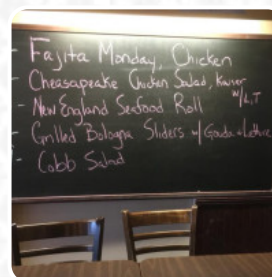 - Fajita Monday, Chicken
- Cheasapeake Chicken Salad, Kaiser
w/L,T
- New England Seafood Roll
- Grilled Bologna Sliders w/ Gouda + Lettuce
- Cobb Salad